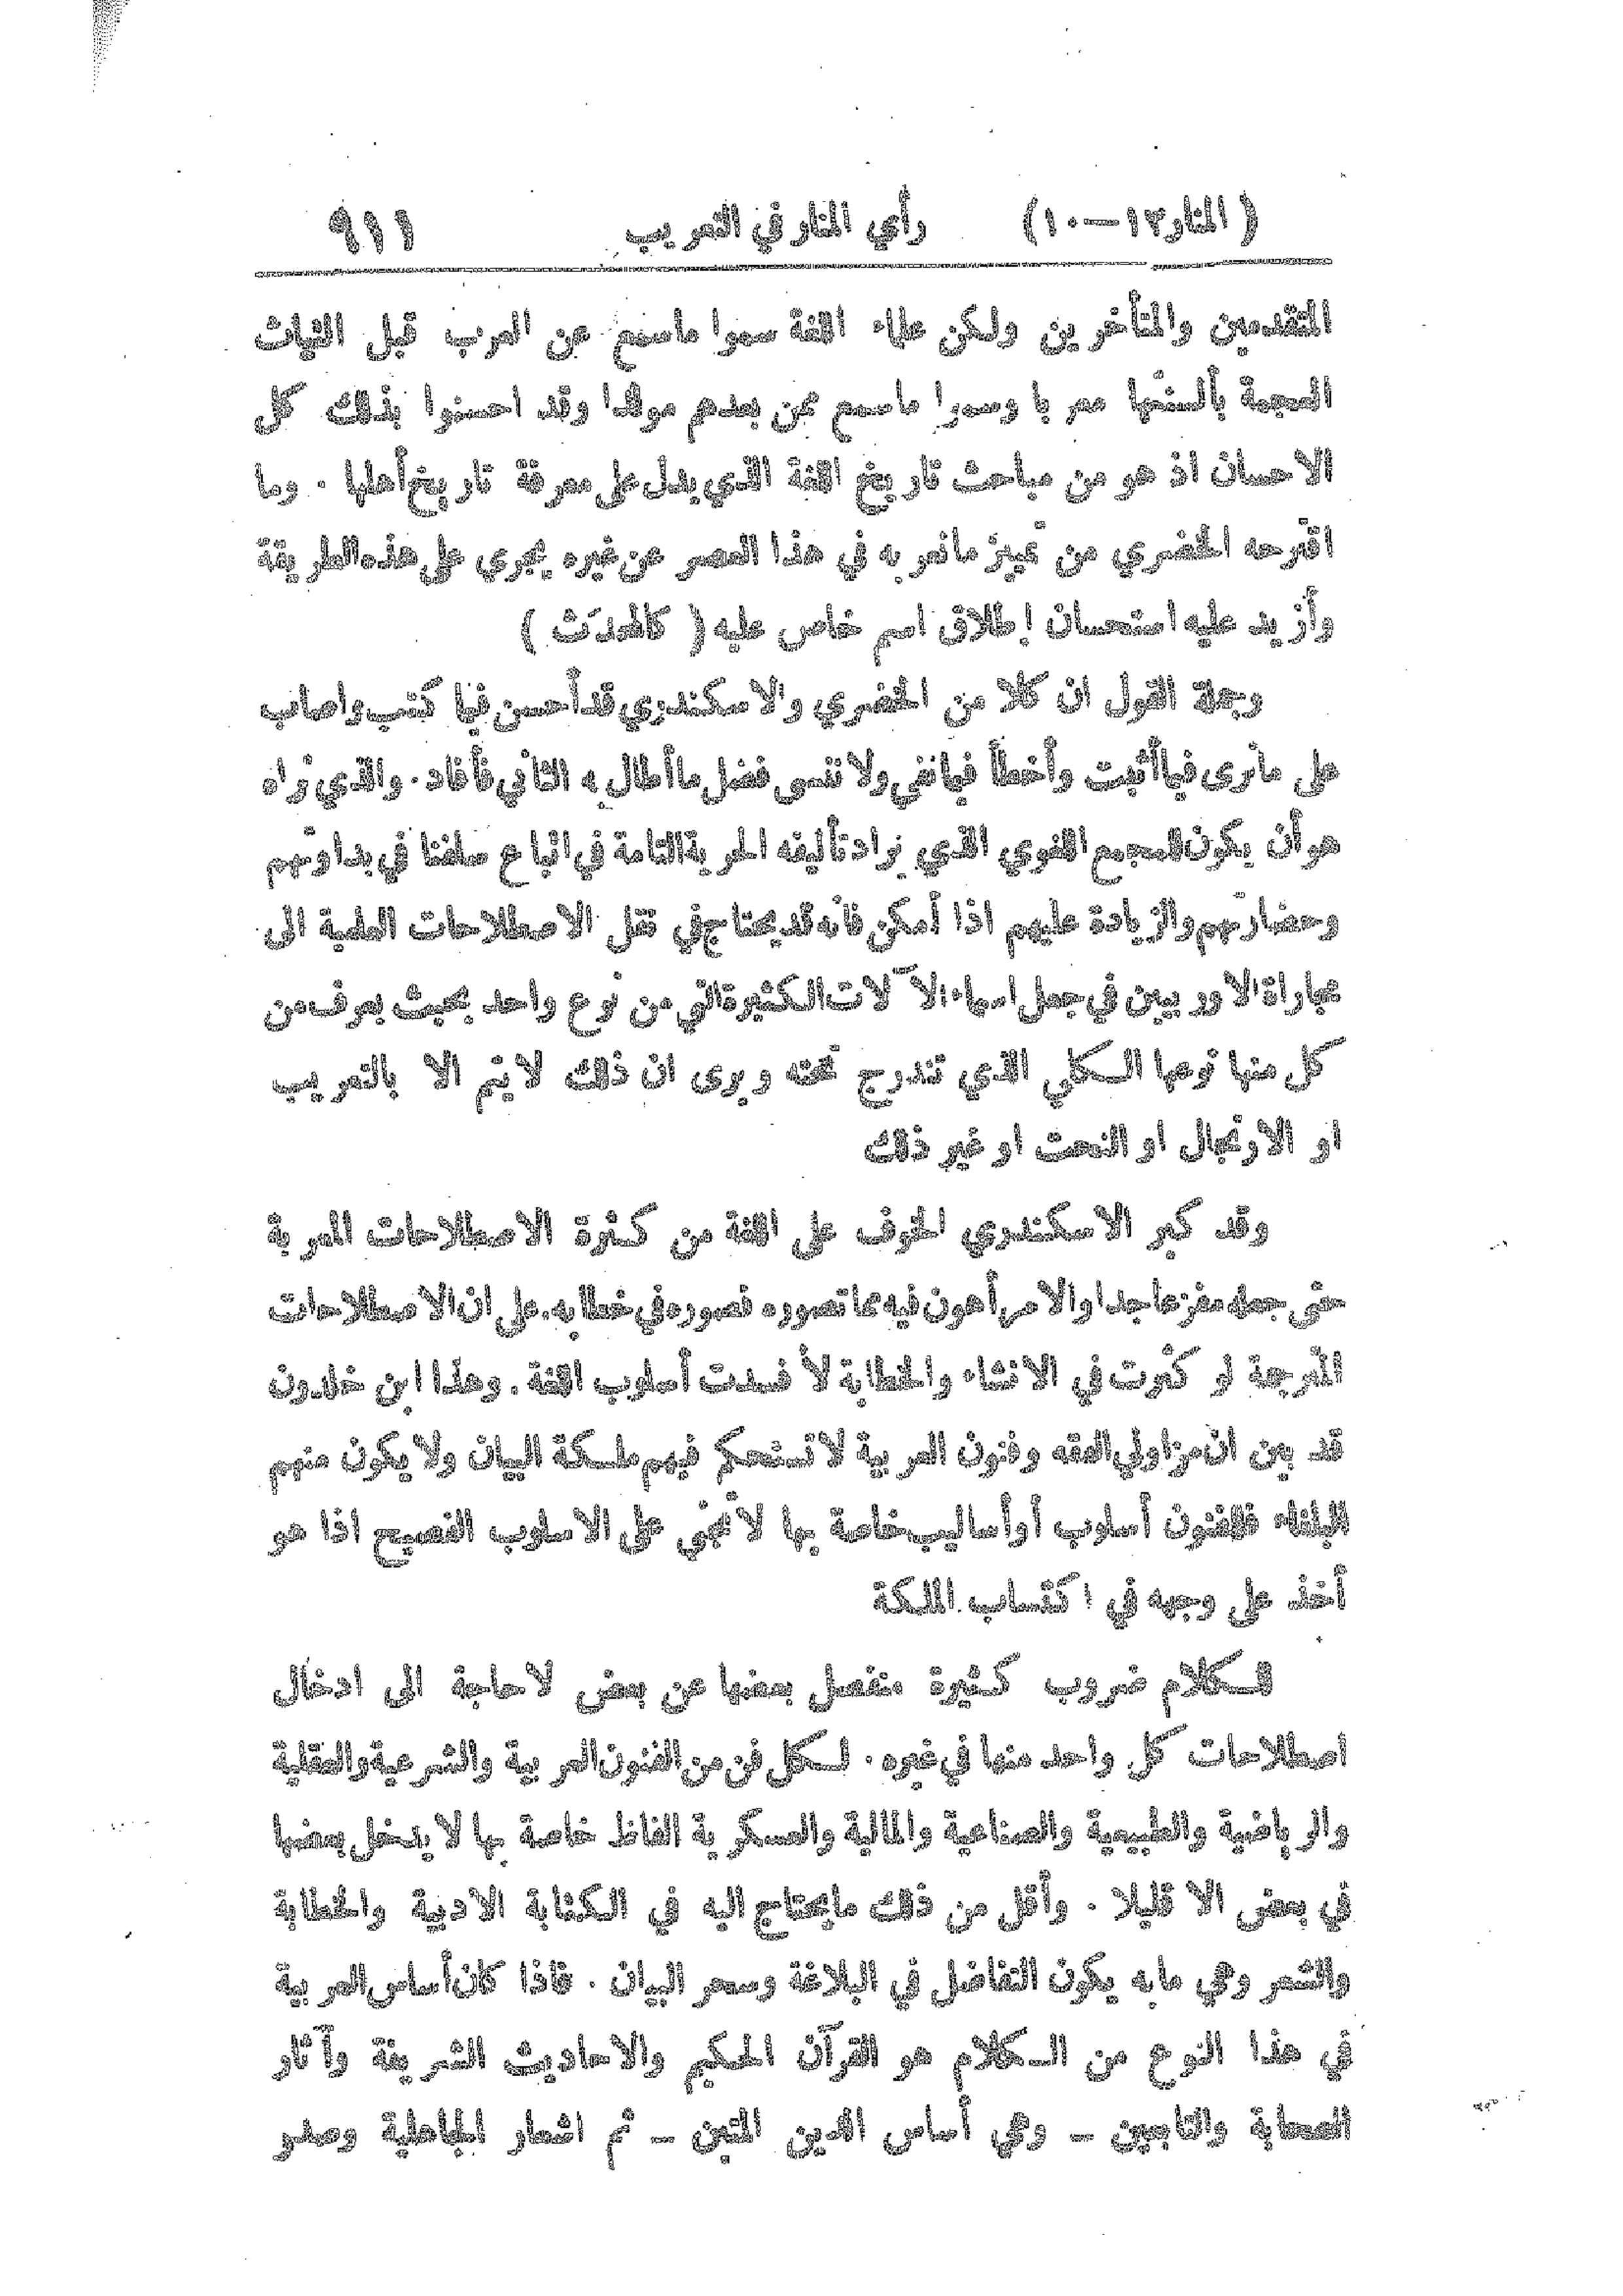 (المنار ١٢—١٠) رأي المنار في التعريب ٩١١
المتقدمين والمتأخرين ولكن علماء اللغة سموا ماسمع عن العرب قبل التياث
العجمة بألسنتها معربا وسموا ماسمع ممن بعدهم مولدا وقد احسنوا بذلك كل
الاحسان اذ هو من مباحث تاريخ اللغة الذي يدل على معرفة تاريخ أهلها . وما
اقترحه الخضري من تمييز مانعر به في هذا العصر عن غيره يجري على هذه الطريقة
وأزيد عليه استحسان إطلاق اسم خاص عليه ( كالمحدَث )
وجملة القول ان كلا من الخضري والاسكندري قد أحسن فيما كتب واصاب
على مانرى فيما أثبت وأخطأ فيما نفى ولا ننسى فضل ما أطال به الثاني فأفاد . والذي نراه
هو أن يكون للمجمع اللغوي الذي يراد تأليفه الحرية التامة في اتباع سلفنا في بداوتهم
وحضارتهم والزيادة عليهم اذا أمكن فانه قد يحتاج في نقل الاصطلاحات العلمية الى
مجاراة الاوربيين في جعل اسماء الآلات الكثيرة التي من نوع واحد بحيث يعرف من
كل منها نوعها الكلي الذي تندرج تحته ويرى ان ذلك لا يتم الا بالتعريب
او الارتجال او النحت او غير ذلك
وقد كبر الاسكندري الخوف على اللغة من كثرة الاصطلاحات المعربة
حتى جعله مفزعا جدا والامر أهون فيه مما تصوره فصوره في خطابه . على ان الاصطلاحات
المترجمة لو كثرت في الانشاء والخطابة لأفسدت أسلوب اللغة . وهذا ابن خلدون
قد بين ان مزاولي الفقه وفنون العربية لا تستحكم فيهم ملكة البيان ولا يكون منهم
البلغاء فللفنون أسلوب أو أساليب خاصة بها لا تجني على الاسلوب الفصيح اذا هو
أخذ على وجهه في اكتساب الملكة
للكلام ضروب كثيرة منفصل بعضها عن بعض لا حاجة الى ادخال
اصطلاحات كل واحد منها في غيره . لكل فن من الفنون العربية والشرعية والعقلية
والرياضية والطبيعية والصناعية والمالية والعسكرية الفاظ خاصة بها لا يدخل بعضها
في بعض الا قليلا . وأقل من ذلك مايحتاج اليه في الكتابة الادبية والخطابة
والشعر وهي مابه يكون التفاضل في البلاغة وسحر البيان . فاذا كان أساس العربية
في هذا النوع من الكلام هو القرآن الحكيم والاحاديث الشريفة وآثار
الصحابة والتابعين – وهي أساس الدين المتين – ثم اشعار الجاهلية وصدر